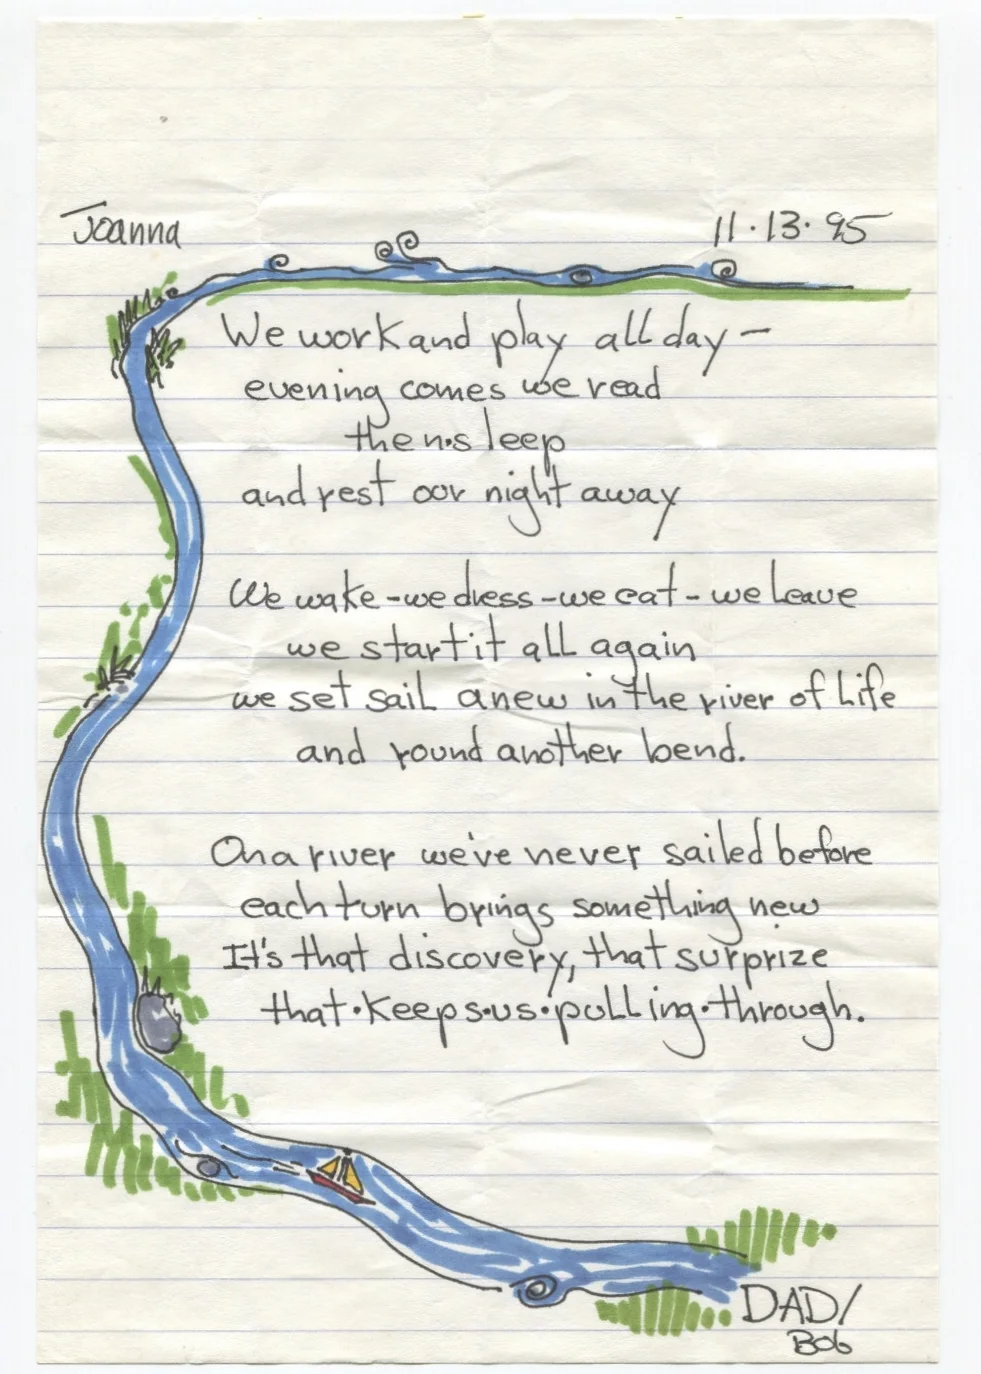 Joanna
11·13·95
We work and play all day –
evening comes we read
then·sleep
and rest our night away
We wake – we dress – we eat – we leave
we start it all again
we set sail anew in the river of life
and round another bend.
On a river we've never sailed before
each turn brings something new
It's that discovery, that surprize
that·keeps·us·pulling·through.
DAD/
Bob